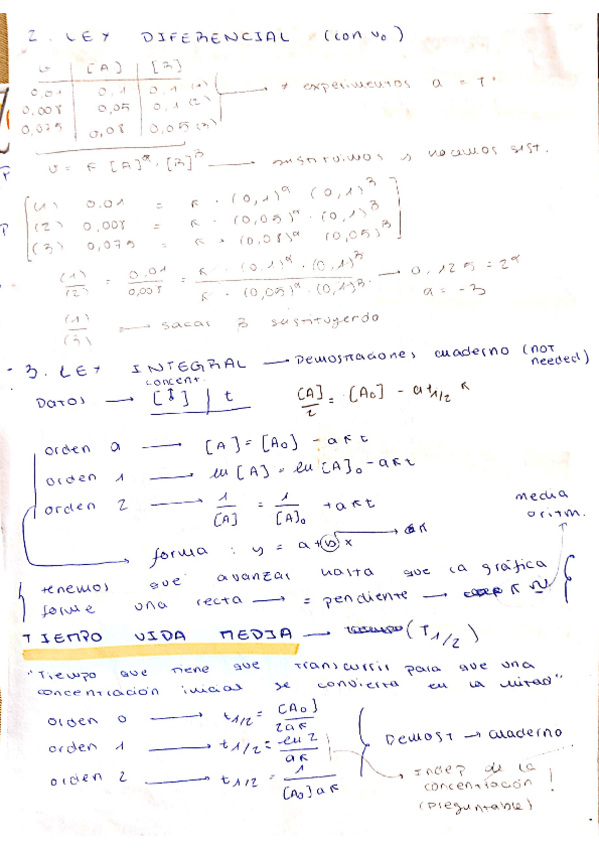 2. LEY DIFERENCIAL (con v₀)
v | [A] | [B]
0,01 | 0,1 | 0,1 (1)
0,008 | 0,05 | 0,1 (2) → ≠ experimentos a = Tº
0,075 | 0,08 | 0,05 (3)
v = K [A]^α · [B]^β → sustituimos y hacemos sist.
(1) 0.01 = K · (0,1)^α (0,1)^β
(2) 0,008 = K · (0,05)^α · (0,1)^β
(3) 0,075 = K · (0.08)^α (0,05)^β
(1)/(2) = 0.01/0,008 = K · (0.1)^α · (0,1)^β / K · (0,05)^α · (0,1)^β → 0,125 = 2^α
α = -3
(1)/(3) → sacas β sustituyendo
3. LEY INTEGRAL → Demostraciones cuaderno (not needed)
concent.
Datos → [ ] | t [A]/2 = [A₀] - a t₁/₂ K
orden 0 → [A] = [A₀] - aKt
orden 1 → ln [A] = ln [A]₀ - aKt
orden 2 → 1/[A] = 1/[A]₀ + aKt
media aritm.
forma : y = a + b x → aK
tenemos que avanzar hasta que la gráfica
forme una recta → = pendiente → K
TIEMPO VIDA MEDIA → (T₁/₂)
"Tiempo que tiene que transcurrir para que una
concentración inicial se convierta en la mitad"
orden 0 → t₁/₂ = [A₀]/2aK
orden 1 → t₁/₂ = -ln 2/aK
Demost → cuaderno
orden 2 → t₁/₂ = 1/[A₀]aK
Indep de la
concentración !
(preguntable)